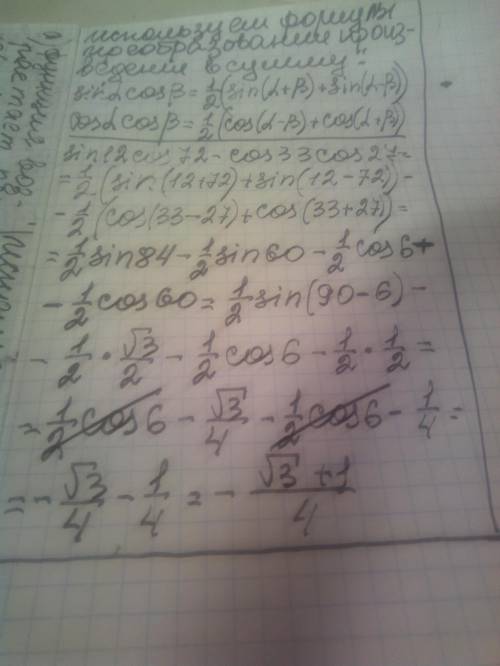 используем формулы
преобразования произ-
ведения в сумму:
sinαcosβ=1/2(sin(α+β)+sin(α-β))
cosαcosβ=1/2(cos(α-β)+cos(α+β))
sin12cos72-cos33cos27=
=1/2(sin(12+72)+sin(12-72))-
-1/2(cos(33-27)+cos(33+27))=
=1/2sin84-1/2sin60-1/2cos6-
-1/2cos60=1/2sin(90-6)-
-1/2·√3/2-1/2cos6-1/2·1/2=
=1/2cos6-√3/4-1/2cos6-1/4=
=-√3/4-1/4=-(√3+1)/4